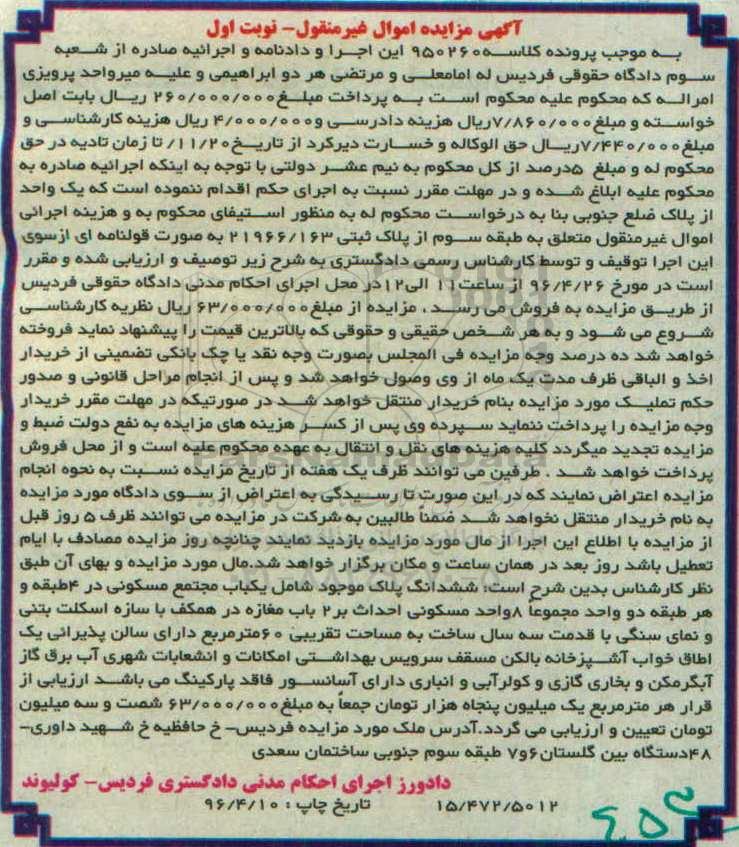 آگهی مزایده اموال غیرمنقول- نوبت اول
به موجب پرونده کلاسه۹۵۰۲۶۰ این اجرا و دادنامه و اجرائیه صادره از شعبه
سوم دادگاه حقوقی فردیس له امامعلی و مرتضی هر دو ابراهیمی و علیه میرواحد پرویزی
امراله که محکوم علیه محکوم است به پرداخت مبلغ۲۶۰/۰۰۰/۰۰۰ ریال بابت اصل
خواسته و مبلغ۷/۸۶۰/۰۰۰ریال هزینه دادرسی و۴/۰۰۰/۰۰۰ ریال هزینه کارشناسی و
مبلغ۷/۴۴۰/۰۰۰ریال حق الوکاله و خسارت دیرکرد از تاریخ۱۱/۲۰/ تا زمان تادیه در حق
محکوم له و مبلغ ۵درصد از کل محکوم به نیم عشر دولتی با توجه به اینکه اجرائیه صادره به
محکوم علیه ابلاغ شده و در مهلت مقرر نسبت به اجرای حکم اقدام ننموده است که یک واحد
از پلاک ضلع جنوبی بنا به درخواست محکوم له به منظور استیفای محکوم به و هزینه اجرائی
اموال غیرمنقول متعلق به طبقه سوم از پلاک ثبتی ۲۱۹۶۶/۱۶۳ به صورت قولنامه ای ازسوی
این اجرا توقیف و توسط کارشناس رسمی دادگستری به شرح زیر توصیف و ارزیابی شده و مقرر
است در مورخ ۹۶/۴/۲۶ از ساعت۱۱ الی۱۲در محل اجرای احکام مدنی دادگاه حقوقی فردیس
از طریق مزایده به فروش می رسد ، مزایده از مبلغ۶۳/۰۰۰/۰۰۰ ریال نظریه کارشناسی
شروع می شود و به هر شخص حقیقی و حقوقی که بالاترین قیمت را پیشنهاد نماید فروخته
خواهد شد ده درصد وجه مزایده فی المجلس بصورت وجه نقد یا چک بانکی تضمینی از خریدار
اخذ و الباقی ظرف مدت یک ماه از وی وصول خواهد شد و پس از انجام مراحل قانونی و صدور
حکم تملیک مورد مزایده بنام خریدار منتقل خواهد شد در صورتیکه در مهلت مقرر خریدار
وجه مزایده را پرداخت ننماید سپرده وی پس از کسر هزینه های مزایده به نفع دولت ضبط و
مزایده تجدید میگردد کلیه هزینه های نقل و انتقال به عهده محکوم علیه است و از محل فروش
پرداخت خواهد شد . طرفین می توانند ظرف یک هفته از تاریخ مزایده نسبت به نحوه انجام
مزایده اعتراض نمایند که در این صورت تا رسیدگی به اعتراض از سوی دادگاه مورد مزایده
به نام خریدار منتقل نخواهد شد ضمناً طالبین به شرکت در مزایده می توانند ظرف ۵ روز قبل
از مزایده با اطلاع این اجرا از مال مورد مزایده بازدید نمایند چنانچه روز مزایده مصادف با ایام
تعطیل باشد روز بعد در همان ساعت و مکان برگزار خواهد شد.مال مورد مزایده و بهای آن طبق
نظر کارشناس بدین شرح است: ششدانگ پلاک موجود شامل یکباب مجتمع مسکونی در ۴طبقه و
هر طبقه دو واحد مجموعاً ۸واحد مسکونی احداث بر۲ باب مغازه در همکف با سازه اسکلت بتنی
و نمای سنگی با قدمت سه سال ساخت به مساحت تقریبی ۶۰مترمربع دارای سالن پذیرائی یک
اطاق خواب آشپزخانه بالکن مسقف سرویس بهداشتی امکانات و انشعابات شهری آب برق گاز
آبگرمکن و بخاری گازی و کولرآبی و انباری دارای آسانسور فاقد پارکینگ می باشد ارزیابی از
قرار هر مترمربع یک میلیون پنجاه هزار تومان جمعاً به مبلغ۶۳/۰۰۰/۰۰۰ شصت و سه میلیون
تومان تعیین و ارزیابی می گردد.آدرس ملک مورد مزایده فردیس- خ حافظیه خ شهید داوری-
۴۸دستگاه بین گلستان۶و۷ طبقه سوم جنوبی ساختمان سعدی
دادورز اجرای احکام مدنی دادگستری فردیس- کولیوند
۱۵/۴۷۲/۵۰۱۲ تاریخ چاپ : ۹۶/۴/۱۰